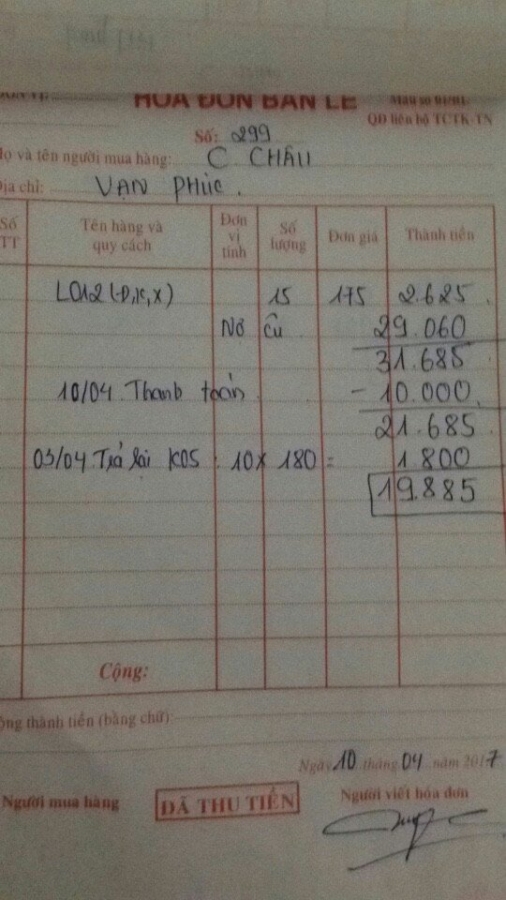 HOÁ ĐƠN BÁN LẺ
QĐ liên bộ TCTK-TN
Số: 299
Họ và tên người mua hàng: C CHÂU
Địa chỉ: VẠN PHÚC.
Số TT
Tên hàng và quy cách
Đơn vị tính
Số lượng
Đơn giá
Thành tiền
L012 (-Đ,K,X) 15 175 2.625
Nợ cũ 29.060
31.685
10/04 Thanh toán - 10.000
21.685
03/04 Trả lại K05 : 10 x 180 = 1.800
19.885
Cộng:
Cộng thành tiền (bằng chữ):
Ngày 10 tháng 04 năm 2017
Người mua hàng
ĐÃ THU TIỀN
Người viết hóa đơn